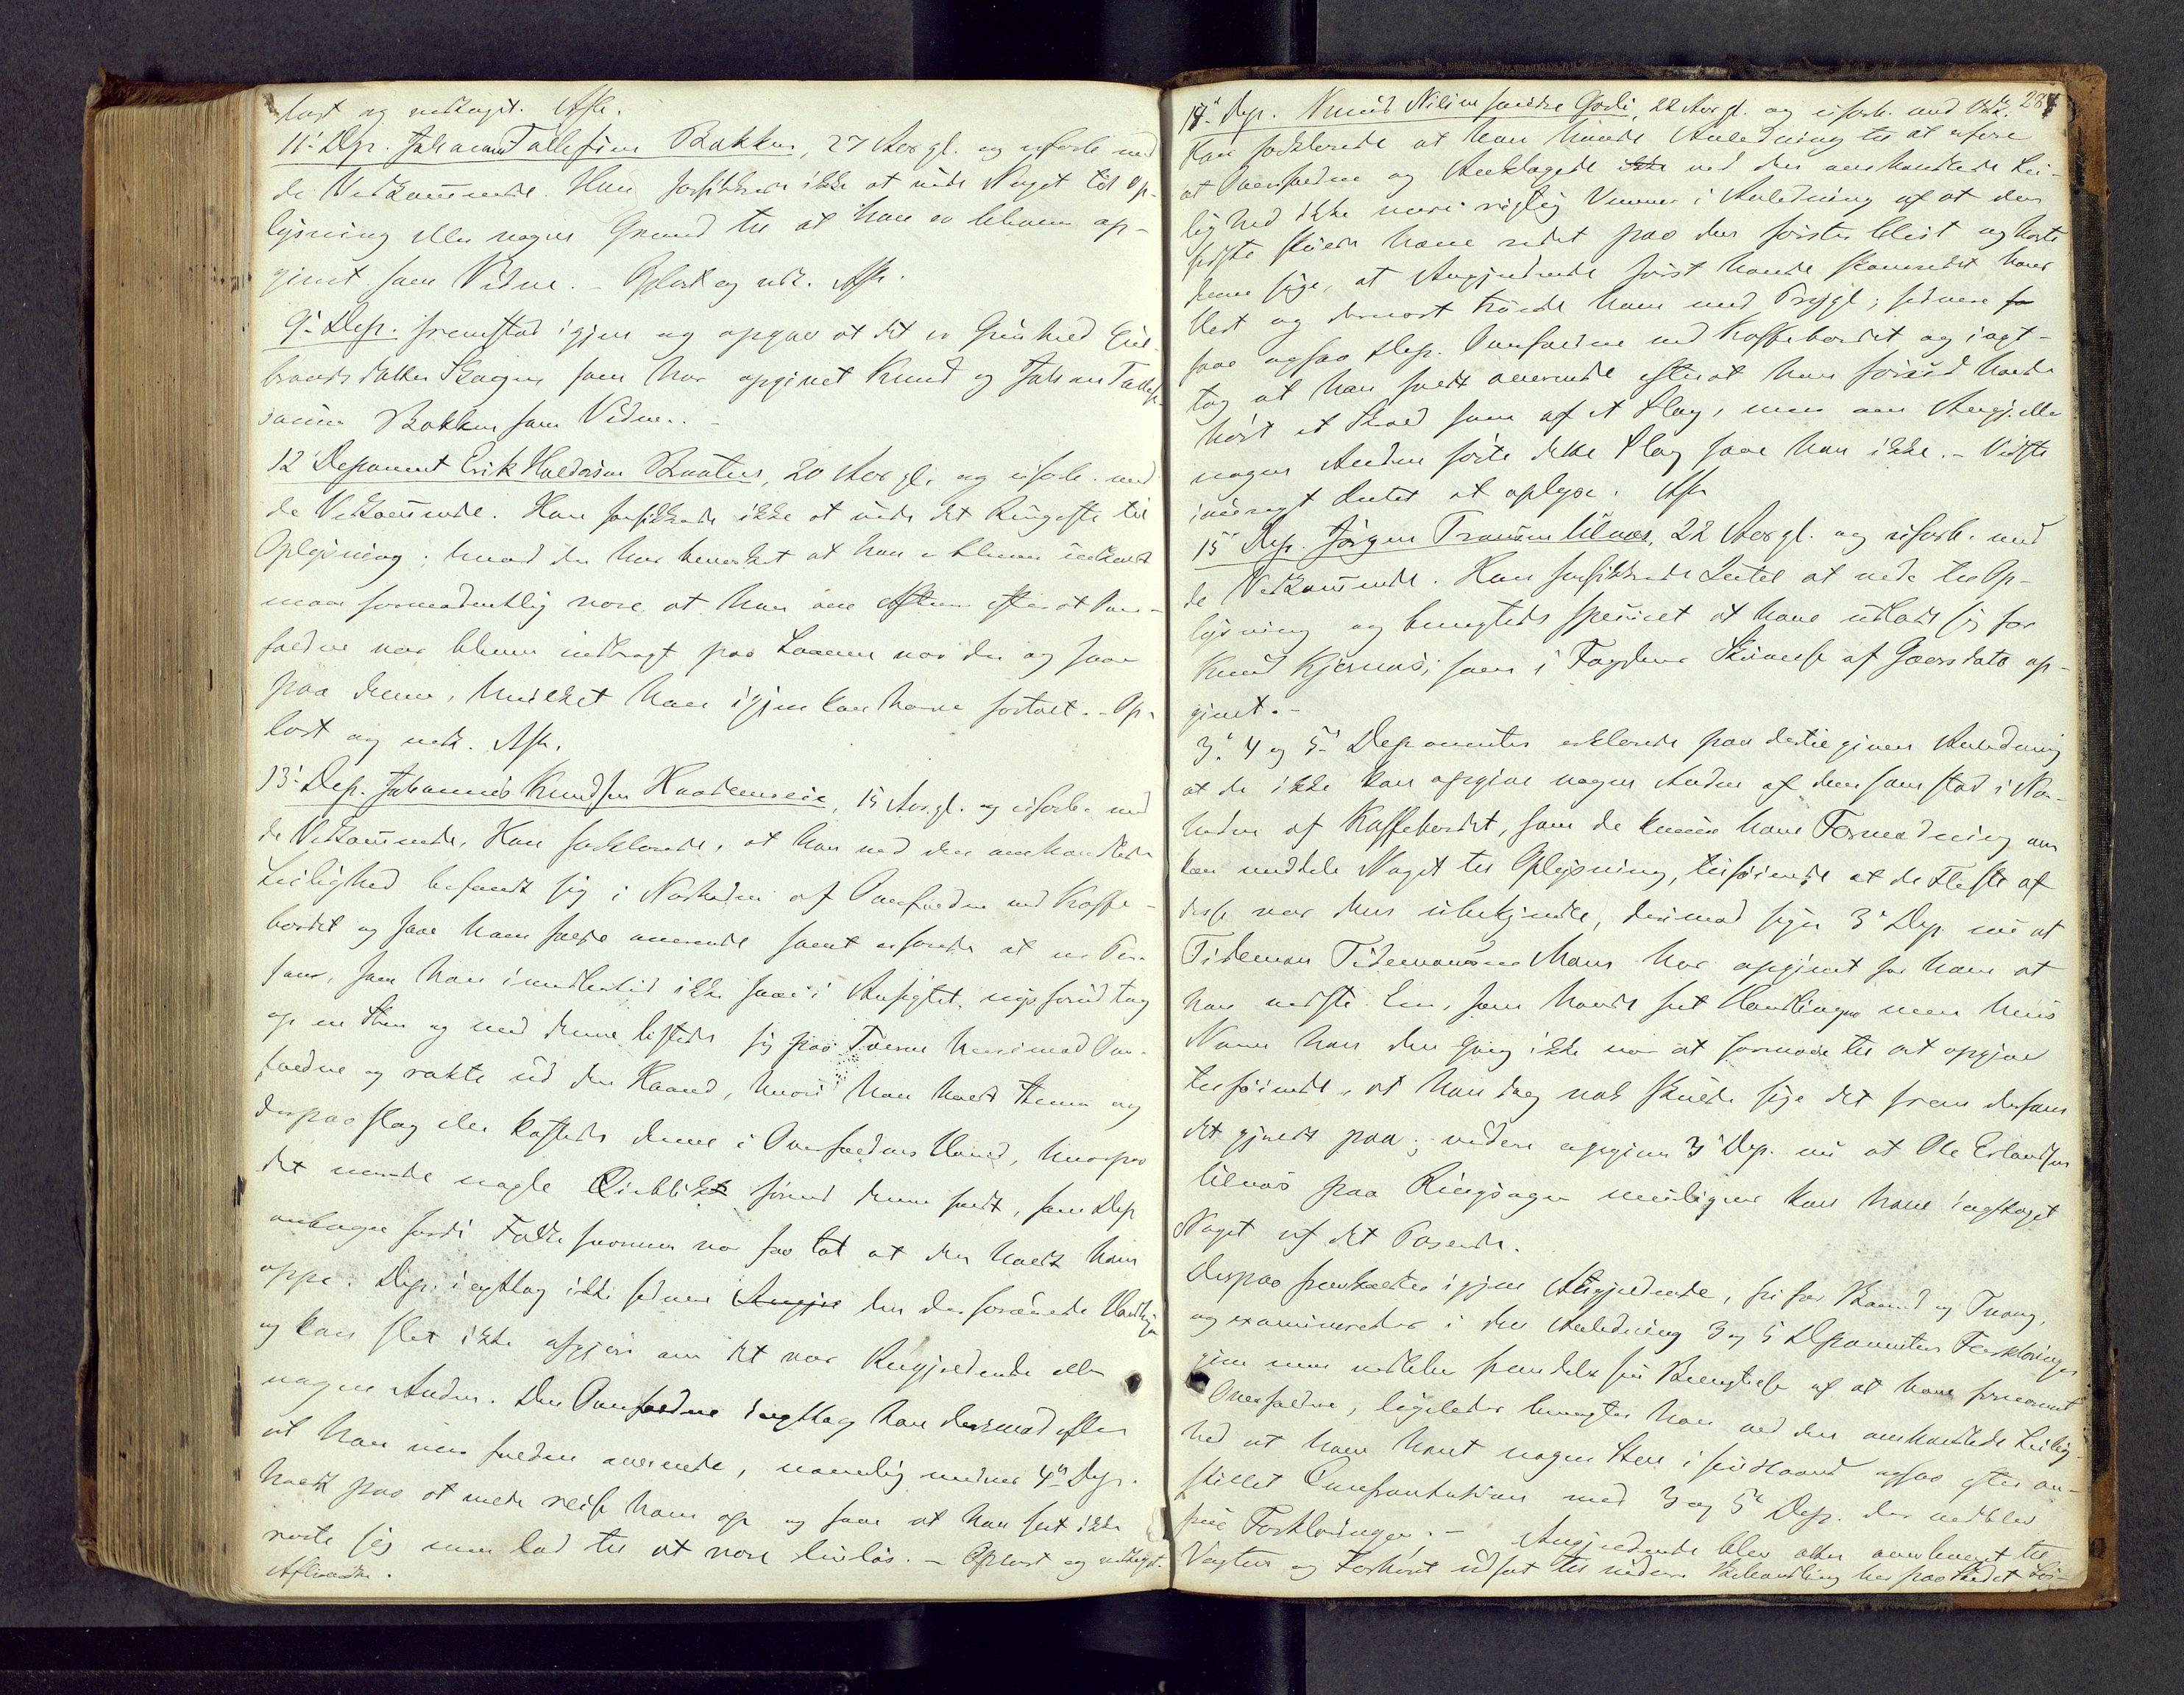 læst og vedtaget. Aftr.
11' Dep. Johannes Tollefsen Bakken, 27 Aar gl. og uforb. med
de Vedkommende. Han forsikkrede ikke at vide Noget til Op-
lysning eller nogen Grund til at han er bleven op-
givet som Vidne. – Oplæst og vedt. Aftr.
9' Dep. fremstod igjen og opgav at det er Gunhild Gul-
brandsdatter Skagen som har opgivet Knud og Johan Tollef-
sønner Bakken som Vidner. –
12' Deponent Erik Haldorsen Braaten, 20 Aar gl. og uforb. med
de Vedkommende. Han forsikkrede ikke at vide det Ringeste til
Oplysning; hvad der har bevirket at han er bleven indkaldt
maa formodentlig være at han om Aftenen efterat Over-
faldne var bleven indbragt paa Laaven var der og saae
paa denne, hvilket han igjen kan have fortalt. – Op-
læst og vedt. Aftr.
13' Dep. Johannes Knudsen Haademseie, 15 Aar gl. og uforb. med
de Vedkommende. Han forklarede, at han ved den omhandlede
Leilighed befandt sig i Nærheden af Overfaldne ved Kaffe-
bordet og saae ham falde overende samt erfarede at en Per-
son, som han imidlertid ikke saae i Ansigtet, nys forud tog
op en Sten og med denne listede sig paa Tæerne henimod Over-
faldne og rakte ud den Haand, hvori han havde Stenen og
derpaa slog eller kastede denne i Overfaldnes Hoved, hvorpaa
det varede nogle Øieblikke førend denne faldt, som Dep
antager fordi Folkesværmen var saa tæt at den holdt ham
oppe. Dep. iagttog ikke sidenere Angjæ den der forøvede Handlingen
og kan slet ikke afgjøre om det var Angjældende eller
nogen Anden. Den Overfaldne iagttog han derimod efter
at han var falden overende, nemlig medens 4' Dep.
holdt paa at ville reise ham op og saae at han slet ikke
rørte sig men lod til at være livløs. – Oplæst og vedtaget.
Aftraadte.
287
14' Dep. Knud Nilsen søndre Godli, 22 Aar gl. og uforb. med Vedk.
Han forklarede at han havde Anledning til at erfare
at Overfaldne og Anklagede ikke ved den omhandlede Lei-
lighed ikke vare rigtig Venner i Anledning af at den
sidste skulde have redet paa den førstes Hest og hørte
denne sige, at Angjældende først havde skamredet hans
Hest og dernæst truede ham med Prygl; sidenere fo
saae ogsaa Dep. Overfaldne ved Kaffebordet og iagt-
tog at han faldt overende efterat han forud havde
hørt et Skrald som af et Slag, men om Angj. eller
nogen Anden førte dette Slag saae han ikke. – Vidste
iøvrigt Intet at oplyse. Aftr
15' Dep. Jørgen Transen Ulnæs, 22 Aar gl. og uforb. med
de Vedkommende. Han forsikkrede Intet at vide til Op-
lysning og benegtede specielt at have udladt sig for
Knud Kjernaas, som i Fogdens Skrivelse af Gaarsdato op-
givet. –
3', 4 og 5' Deponenter erklærede paa dertil given Anledning
at de ikke kan opgive nogen Anden af dem som stod i Nær-
heden af Kaffebordet, som de kunne have Formodning om
kan meddele Noget til Oplysning, tilføiende at de Fleste af
disse var dem ubekjendte, derimod siger 3' Dep. nu at
Tideman Tidemansen Moen har opgivet for ham at
han vidste En, som havde seet Handlingen men hvis
Navn han den Gang ikke var at formaae til at opgive
tilføiende, at han dog nok skulde sige det frem dersom
det gjældt paa; videre opgiver 3' Dep. nu at Ole Erlandsen
Ulnæs paa Ringsager muligens kan have iagttaget
Noget af det Passerede.
Derpaa fremkaldtes igjen Angjældende, fri for Baand og Tvang,
og examineredes i den Anledning 3 og 5 Deponenters Forklaringer
give men vedblev fremdeles sin Benegtelse af at have fornærmet
Overfaldne, ligeledes benegter han ved den omhandlede Leilig-
hed at have havt nogen Sten i sin Haand ogsaa efter an-
stillet Confrontation med 3 og 5' Dep. der vedblev
sine Forklaringer. – Angjældende blev atter overleveret til
Vagten og Forhøret udsat til videre Behandling her paa Stedet